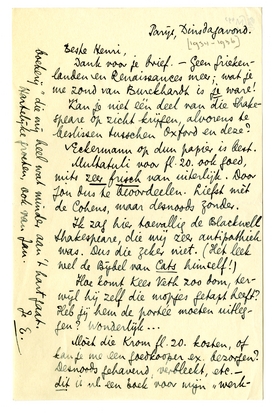 Parijs, Dinsdagavond.
[1934-1936]
Beste Henri,
Dank voor je brief. — Geen Grieken-
landen en Renaissances meer; wat je
me zond van Burckhardt is je ware!
Kan je niet één deel van die Shake-
speare op zicht krijgen, alvorens te
beslissen tusschen Oxford en deze?
Eckermann op dun papier is best.
Multatuli voor fl. 20. ook goed,
mits zeer frisch van uiterlijk. Door
Jou ons te beoordeelen. Liefst mèt
de Cohens, maar desnoods zonder.
Ik zag hier toevallig de Blackwell
Shakespeare, die mij zeer antipathiek
was. Dus die zeker niet. (Het leek
wel de Bijbel van Cats himself!)
Hoe komt Kees Veth zoo dom, ter-
wijl hij zelf die mopjes getapt heeft?
Heb jij hem de portée moeten uitleg-
gen? Wonderlijk...
Moet die Krom fl. 20 kosten, of
kan je me een goedkooper ex. bezorgen?
Desnoods gehavend, verbleekt, etc. —
dit is nl. een boek voor mijn „werk-
boekerij" die mij heel wat minder aan 't hart gaat.
Hartelijke groeten, ook van Jan.
E.